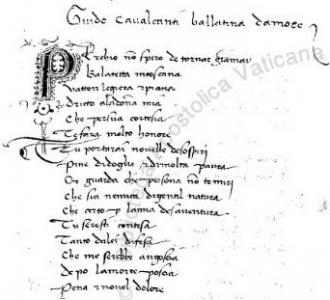 Guido Cavalcanti ballatina damore
Perchio nõ spero de tornar giamai
Balatetta intoscana
Vatten legiera & piana
Dritto aladõna mia
Che persua cortesia
Te fara molto honore
Tu porterai novelle desospiri
Pine di doglia & dimolta paura
Ma guarda che persona nõ te miri
Che sia nemica digentil natura
Che certo p la mia desaventura
Tu seresti contesa
Tanto dalei difesa
Che me serebbe angoscia
Depo lamorte poscia
Pena & novel dolore
Apostolica Vaticana